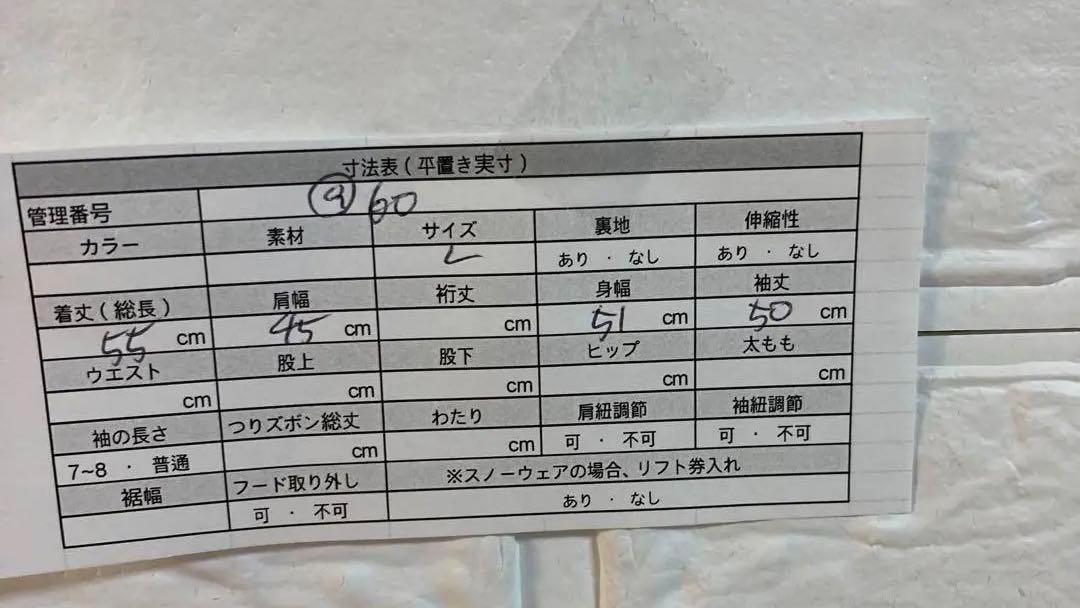 寸法表(平置き実寸)
管理番号 ⓐ 60
カラー 素材 サイズ 裏地 伸縮性
L あり ・ なし あり ・ なし
着丈(総長) 肩幅 裄丈 身幅 袖丈
55 cm 45 cm cm 51 cm 50 cm
ウエスト 股上 股下 ヒップ 太もも
cm cm cm cm cm
袖の長さ つりズボン総丈 わたり 肩紐調節 袖紐調節
7~8 ・ 普通 cm cm 可 ・ 不可 可 ・ 不可
裾幅 フード取り外し ※スノーウェアの場合、リフト券入れ
可 ・ 不可 あり ・ なし